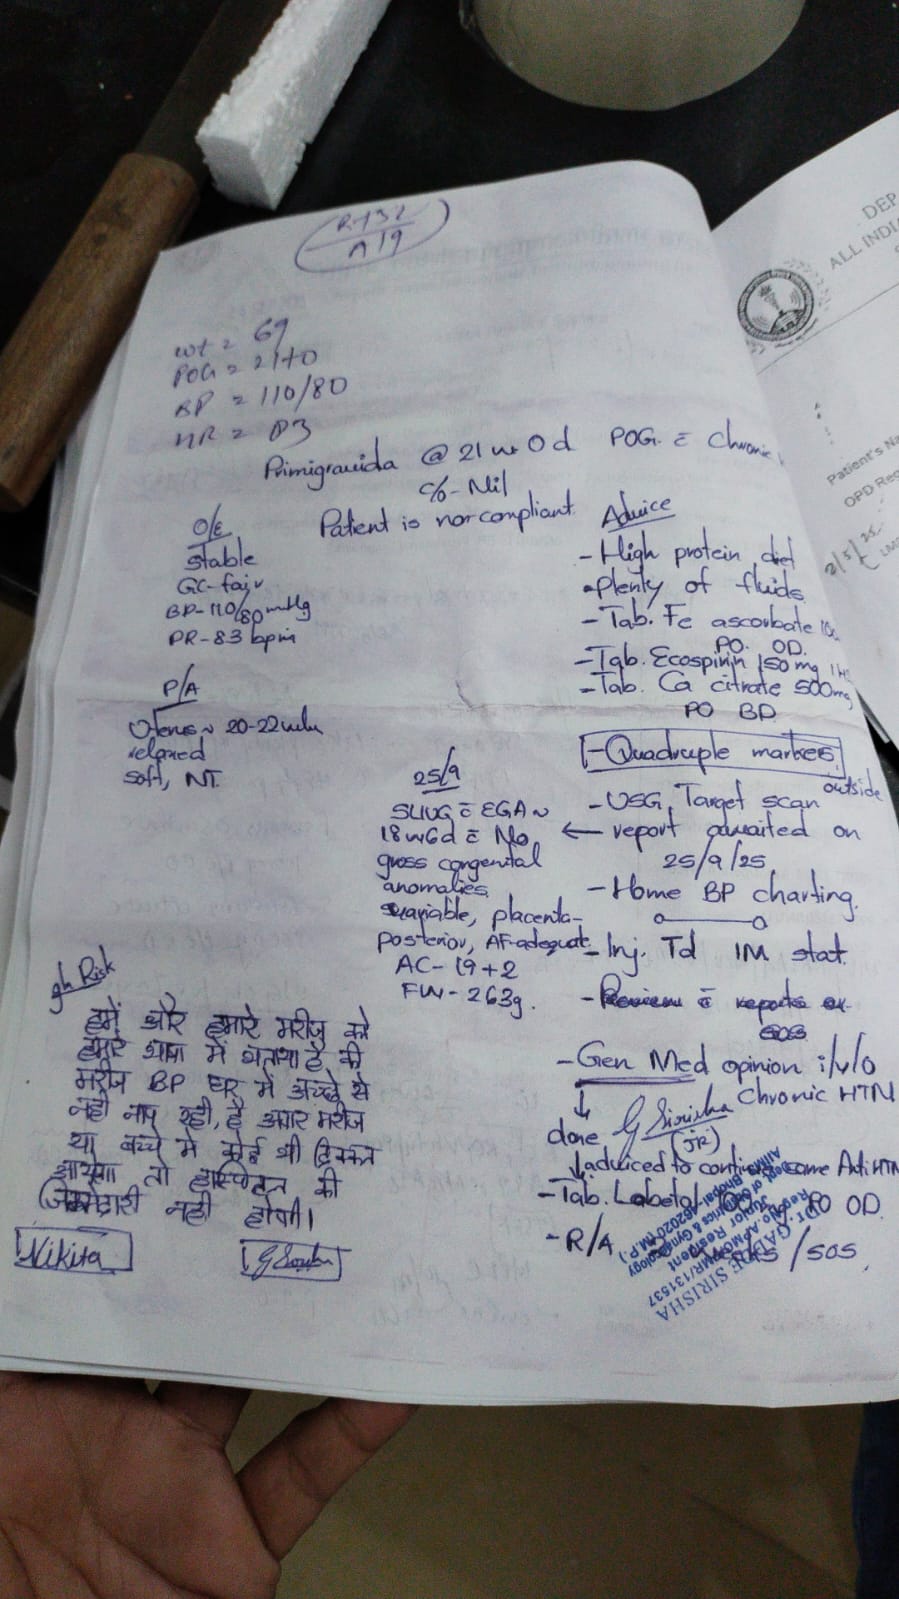 R-132
A19
wt = 69
POG = 21+0
BP = 110/80
HR = 83
Primigravida @ 21w 0d POG c̄ Chronic
c/o - Nil
Patient is non compliant.
O/E
stable
GC-fair
BP-110/80 mmHg
PR-83 bpm
P/A
Uterus ~ 20-22 weeks
relaxed
soft, NT.
25/9
SLIUG c̄ EGA ~
18w6d c̄ No
gross congenital
anomalies
placenta-
posterior, AF-adequate
AC- 19+2
FW- 263g.
Advice
- High protein diet
- Plenty of fluids
- Tab. Fe ascorbate
PO. OD.
- Tab. Ecospirin 150mg
- Tab. Ca citrate 500mg
PO BD
- Quadruple markers
outside
- USG, Target scan
← report awaited on
25/9/25
- Home BP charting.
- Inj. Td IM stat.
- Review c̄ reports
SOS
- Gen Med opinion i/v/o
Chronic HTN
↓
done G Sirisha
(JR)
↓ adviced to continue same Anti HTN
- Tab. Labetalol PO OD.
- R/A /SOS
gh Risk
हमें और हमारे मरीज को
हमारे भाषा में बताया है की
मरीज BP घर में अच्छे से
नही नाप रही, है अगर मरीज
या बच्चे में कोई भी दिक्कत
आयेगा तो हास्पिटल की
जिम्मेदारी नही होगी।
Nikita
G Sirisha
SIRISHA
Junior Resident
Dept. of Obstetrics & Gynaecology
AIIMS Bhopal-462020 (M.P.)
DEP
ALL INDI
Patient's Na
OPD Reg
2/5/25
LM